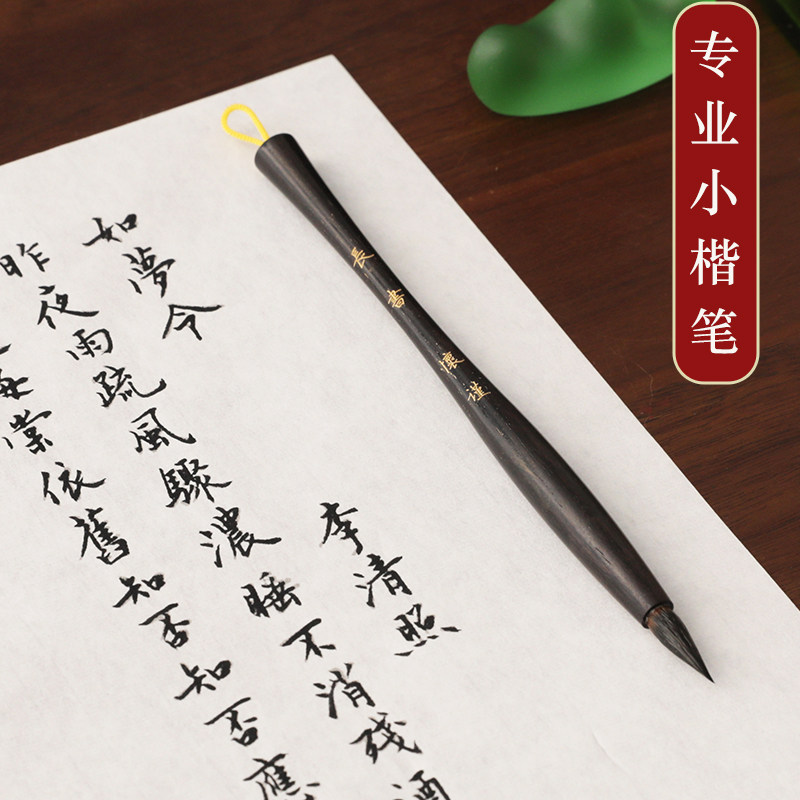 专业小楷笔
長書懷謹
如夢令 李清照
昨夜雨疏風驟濃睡不消殘酒
棠依舊知否知否應